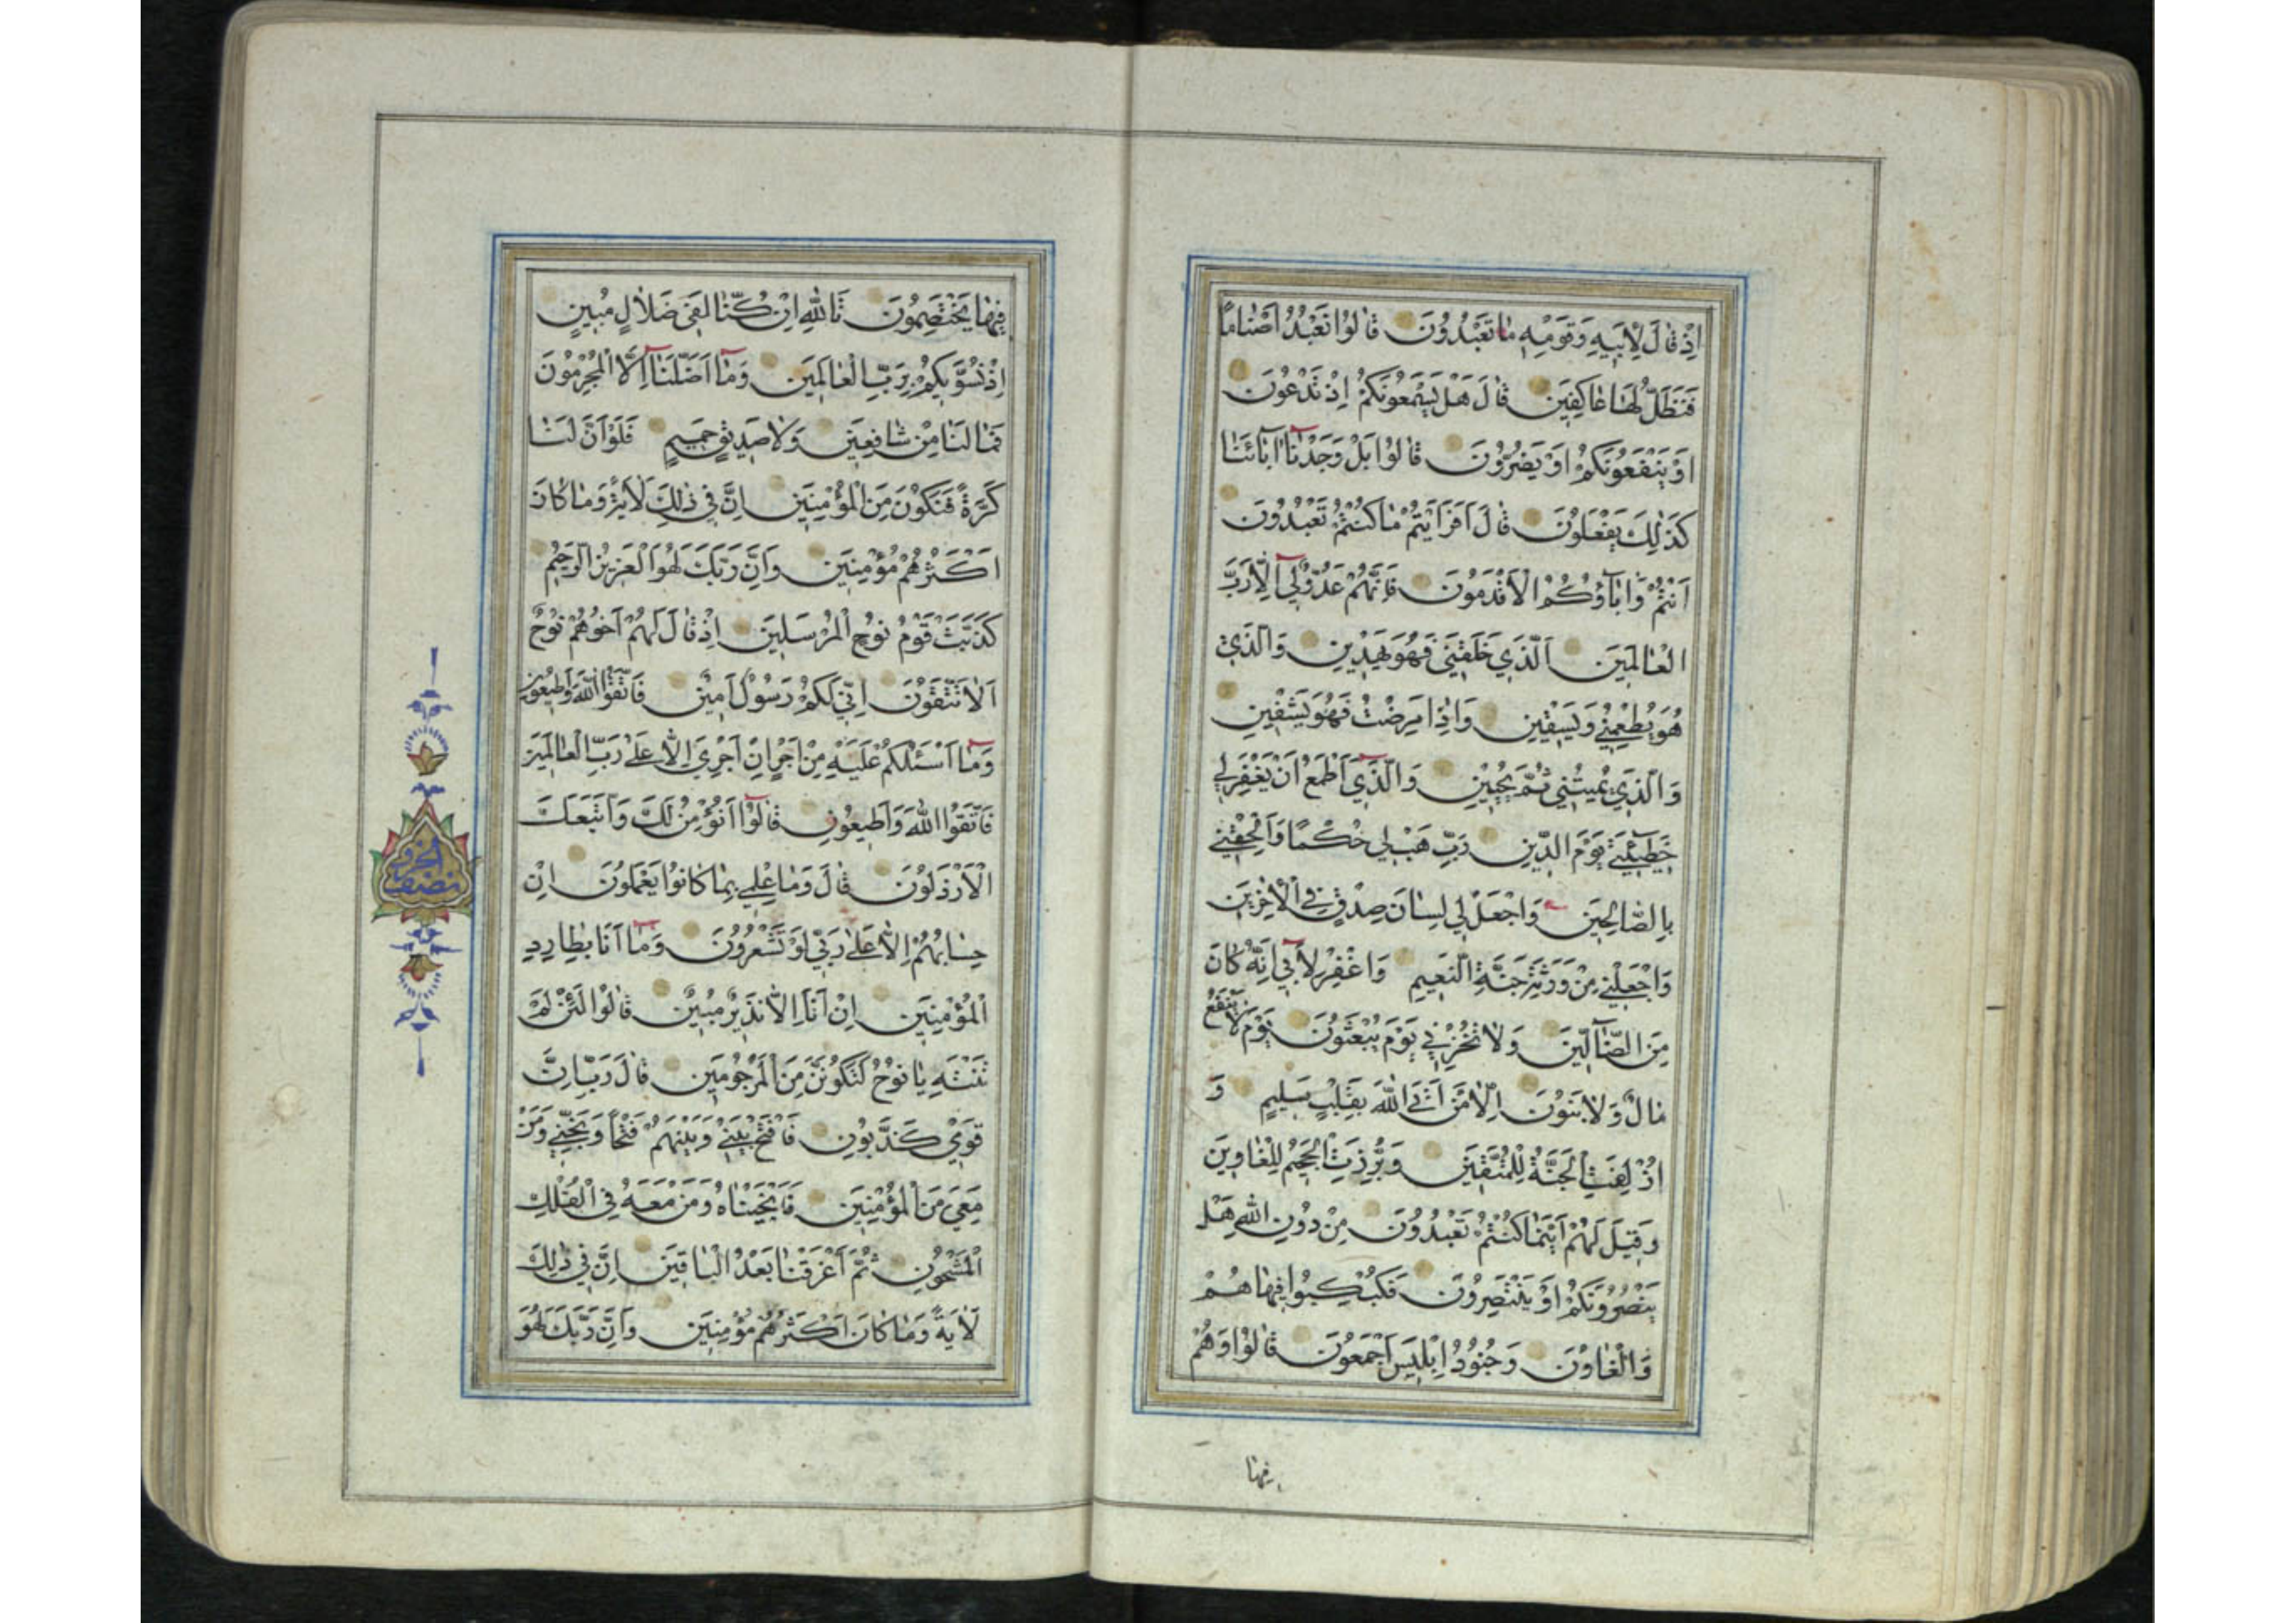 اِذْ قَالَ لِاَبٖيهِ وَقَوْمِهٖ مَا تَعْبُدُونَ قَالُوا نَعْبُدُ اَصْنَامًا
فَنَظَلُّ لَهَا عَاكِفٖينَ قَالَ هَلْ يَسْمَعُونَكُمْ اِذْ تَدْعُونَ
اَوْ يَنْفَعُونَكُمْ اَوْ يَضُرُّونَ قَالُوا بَلْ وَجَدْنَا اٰبَائَنَا
كَذٰلِكَ يَفْعَلُونَ قَالَ اَفَرَاَيْتُمْ مَا كُنْتُمْ تَعْبُدُونَ
اَنْتُمْ وَاٰبَاؤُكُمُ الْاَقْدَمُونَ فَاِنَّهُمْ عَدُوٌّ لٖى اِلَّا رَبَّ
الْعَالَمٖينَ اَلَّذٖي خَلَقَنٖي فَهُوَ يَهْدٖينِ وَالَّذٖي
هُوَ يُطْعِمُنٖي وَيَسْقٖينِ وَاِذَا مَرِضْتُ فَهُوَ يَشْفٖينِ
وَالَّذٖي يُمٖيتُنٖي ثُمَّ يُحْيٖينِ وَالَّذٖي اَطْمَعُ اَنْ يَغْفِرَ لٖي
خَطٖيئَتٖي يَوْمَ الدّٖينِ رَبِّ هَبْ لٖي حُكْمًا وَاَلْحِقْنٖي
بِالصَّالِحٖينَ وَاجْعَلْ لٖي لِسَانَ صِدْقٍ فِي الْاٰخِرٖينَ
وَاجْعَلْنٖي مِنْ وَرَثَةِ جَنَّةِ النَّعٖيمِ وَاغْفِرْ لِاَبٖي اِنَّهُ كَانَ
مِنَ الضَّالّٖينَ وَلَا تُخْزِنٖي يَوْمَ يُبْعَثُونَ يَوْمَ لَا يَنْفَعُ
مَالٌ وَلَا بَنُونَ اِلَّا مَنْ اَتَى اللّٰهَ بِقَلْبٍ سَلٖيمٍ وَ
اُزْلِفَتِ الْجَنَّةُ لِلْمُتَّقٖينَ وَبُرِّزَتِ الْجَحٖيمُ لِلْغَاوٖينَ
وَقٖيلَ لَهُمْ اَيْنَمَا كُنْتُمْ تَعْبُدُونَ مِنْ دُونِ اللّٰهِ هَلْ
يَنْصُرُونَكُمْ اَوْ يَنْتَصِرُونَ فَكُبْكِبُوا فٖيهَا هُمْ
وَالْغَاوُنَ وَجُنُودُ اِبْلٖيسَ اَجْمَعُونَ قَالُوا وَهُمْ
فيها
فٖيهَا يَخْتَصِمُونَ تَاللّٰهِ اِنْ كُنَّا لَفٖي ضَلَالٍ مُبٖينٍ
اِذْ نُسَوّٖيكُمْ بِرَبِّ الْعَالَمٖينَ وَمَا اَضَلَّنَا اِلَّا الْمُجْرِمُونَ
فَمَا لَنَا مِنْ شَافِعٖينَ وَلَا صَدٖيقٍ حَمٖيمٍ فَلَوْ اَنَّ لَنَا
كَرَّةً فَنَكُونَ مِنَ الْمُؤْمِنٖينَ اِنَّ فٖي ذٰلِكَ لَاٰيَةً وَمَا كَانَ
اَكْثَرُهُمْ مُؤْمِنٖينَ وَاِنَّ رَبَّكَ لَهُوَ الْعَزٖيزُ الرَّحٖيمُ
كَذَّبَتْ قَوْمُ نُوحٍ الْمُرْسَلٖينَ اِذْ قَالَ لَهُمْ اَخُوهُمْ نُوحٌ
اَلَا تَتَّقُونَ اِنّٖي لَكُمْ رَسُولٌ اَمٖينٌ فَاتَّقُوا اللّٰهَ وَاَطٖيعُونِ
وَمَا اَسْئَلُكُمْ عَلَيْهِ مِنْ اَجْرٍ اِنْ اَجْرِيَ اِلَّا عَلٰى رَبِّ الْعَالَمٖينَ
فَاتَّقُوا اللّٰهَ وَاَطٖيعُونِ قَالُوا اَنُؤْمِنُ لَكَ وَاتَّبَعَكَ
الْاَرْذَلُونَ قَالَ وَمَا عِلْمٖي بِمَا كَانُوا يَعْمَلُونَ اِنْ
حِسَابُهُمْ اِلَّا عَلٰى رَبّٖي لَوْ تَشْعُرُونَ وَمَا اَنَا بِطَارِدِ
الْمُؤْمِنٖينَ اِنْ اَنَا اِلَّا نَذٖيرٌ مُبٖينٌ قَالُوا لَئِنْ لَمْ
تَنْتَهِ يَا نُوحُ لَتَكُونَنَّ مِنَ الْمَرْجُومٖينَ قَالَ رَبِّ اِنَّ
قَوْمٖي كَذَّبُونِ فَافْتَحْ بَيْنٖي وَبَيْنَهُمْ فَتْحًا وَنَجِّنٖي وَمَنْ
مَعِيَ مِنَ الْمُؤْمِنٖينَ فَاَنْجَيْنَاهُ وَمَنْ مَعَهُ فِي الْفُلْكِ
الْمَشْحُونِ ثُمَّ اَغْرَقْنَا بَعْدُ الْبَاقٖينَ اِنَّ فٖي ذٰلِكَ
لَاٰيَةً وَمَا كَانَ اَكْثَرُهُمْ مُؤْمِنٖينَ وَاِنَّ رَبَّكَ لَهُوَ
نصف الحزب